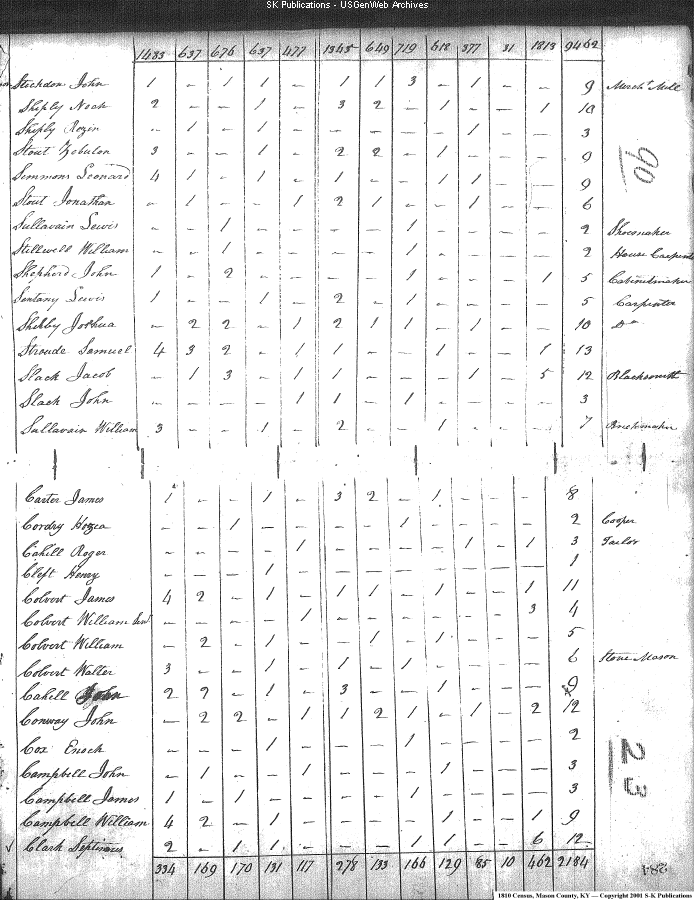 SK Publications - USGenWeb Archives
1483 637 676 637 477 1345 649 719 618 377 31 1813 9462
John 1 - 1 1 - 1 1 3 - 1 - - 9 Mercht Mill
Shiply Noah 2 - - 1 - 3 2 - 1 - - 1 10
Shiply Rozin - 1 - 1 - - - - - 1 - - 3
Stout Zebulon 3 - - 1 - 2 2 - 1 - - - 9
Simmons Leonard 4 1 - 1 - 1 - - 1 1 - - 9
Stout Jonathan - 1 - - 1 2 1 - - 1 - - 6
Sullavain Lewis - - 1 - - - - 1 - - - - 2 Shoemaker
Stillwell William - - 1 - - - - 1 - - - - 2 House Carpent
Shepherd John 1 - 2 - - - - 1 - - - 1 5 Cabinetmaker
Lewis 1 - - 1 - 2 - 1 - - - - 5 Carpenter
Shelby Joshua - 2 2 - 1 2 1 1 - 1 - - 10 Do
Stroude Samuel 4 3 2 - 1 1 - - 1 - - 1 13
Slack Jacob - 1 3 - 1 1 - - - 1 - 5 12 Blacksmith
Slack John - - - - 1 1 - 1 - - - - 3
Sullavain William 3 - - 1 - 2 - - 1 - - - 7 Brickmaker
90
Carter James 1 - - 1 - 3 2 - 1 - - - 8
Cordry Hozea - - 1 - - - - 1 - - - - 2 Cooper
Cahill Roger - - - - 1 - - - - 1 - 1 3 Tailor
Cleft Henry - - - 1 - - - - - - - - 1
Colvert James 4 2 - 1 - 1 1 - 1 - - 1 11
Colvert William Senr - - - - 1 - - - - - - 3 4
Colvert William - 2 - 1 - - 1 - 1 - - - 5
Colvert Walter 3 - - 1 - 1 - 1 - - - - 6 Stone Mason
Cahill John 2 2 - 1 - 3 - - 1 - - - 9
Conway John - 2 2 - 1 1 2 1 - 1 - 2 12
Cox Enoch - - - 1 - - - 1 - - - - 2
Campbell John - 1 - - 1 - - - 1 - - - 3
Campbell James 1 - 1 - - - - 1 - - - - 3
Campbell William 4 2 - 1 - - - - 1 - - 1 9
Clark Septimus 2 - 1 1 - - - 1 1 - - 6 12
23
334 169 170 131 117 278 133 166 129 85 10 462 2184
284
1810 Census, Mason County, KY — Copyright 2001 S-K Publications